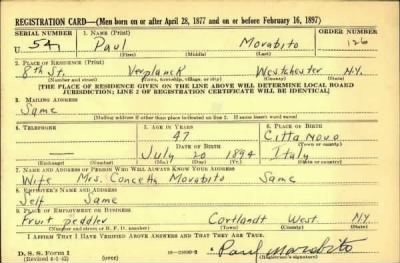 REGISTRATION CARD—(Men born on or after April 28, 1877 and on or before February 16, 1897)
SERIAL NUMBER 1. NAME (Print) ORDER NUMBER
U 541 Paul Morabito 126
(First) (Middle) (Last)
2. PLACE OF RESIDENCE (Print)
8th St. Verplanck Westchester N.Y.
(Number and street) (Town, township, village, or city) (County) (State)
[THE PLACE OF RESIDENCE GIVEN ON THE LINE ABOVE WILL DETERMINE LOCAL BOARD
JURISDICTION; LINE 2 OF REGISTRATION CERTIFICATE WILL BE IDENTICAL]
3. MAILING ADDRESS
Same
(Mailing address if other than place indicated on line 2. If same insert word same)
4. TELEPHONE 5. AGE IN YEARS 6. PLACE OF BIRTH
47 Citta Nova
DATE OF BIRTH (Town or county)
July 20 1894 Italy
(Exchange) (Number) (Mo.) (Day) (Yr.) (State or country)
7. NAME AND ADDRESS OF PERSON WHO WILL ALWAYS KNOW YOUR ADDRESS
Wife Mrs. Concetta Morabito Same
8. EMPLOYER'S NAME AND ADDRESS
Self Same
9. PLACE OF EMPLOYMENT OR BUSINESS
Fruit peddler Cortlandt West. N.Y.
(Number and street or R. F. D. number) (Town) (County) (State)
I AFFIRM THAT I HAVE VERIFIED ABOVE ANSWERS AND THAT THEY ARE TRUE.
D. S. S. Form 1 Paul Morabito
(Revised 4-1-42) (over) (Registrant's signature)